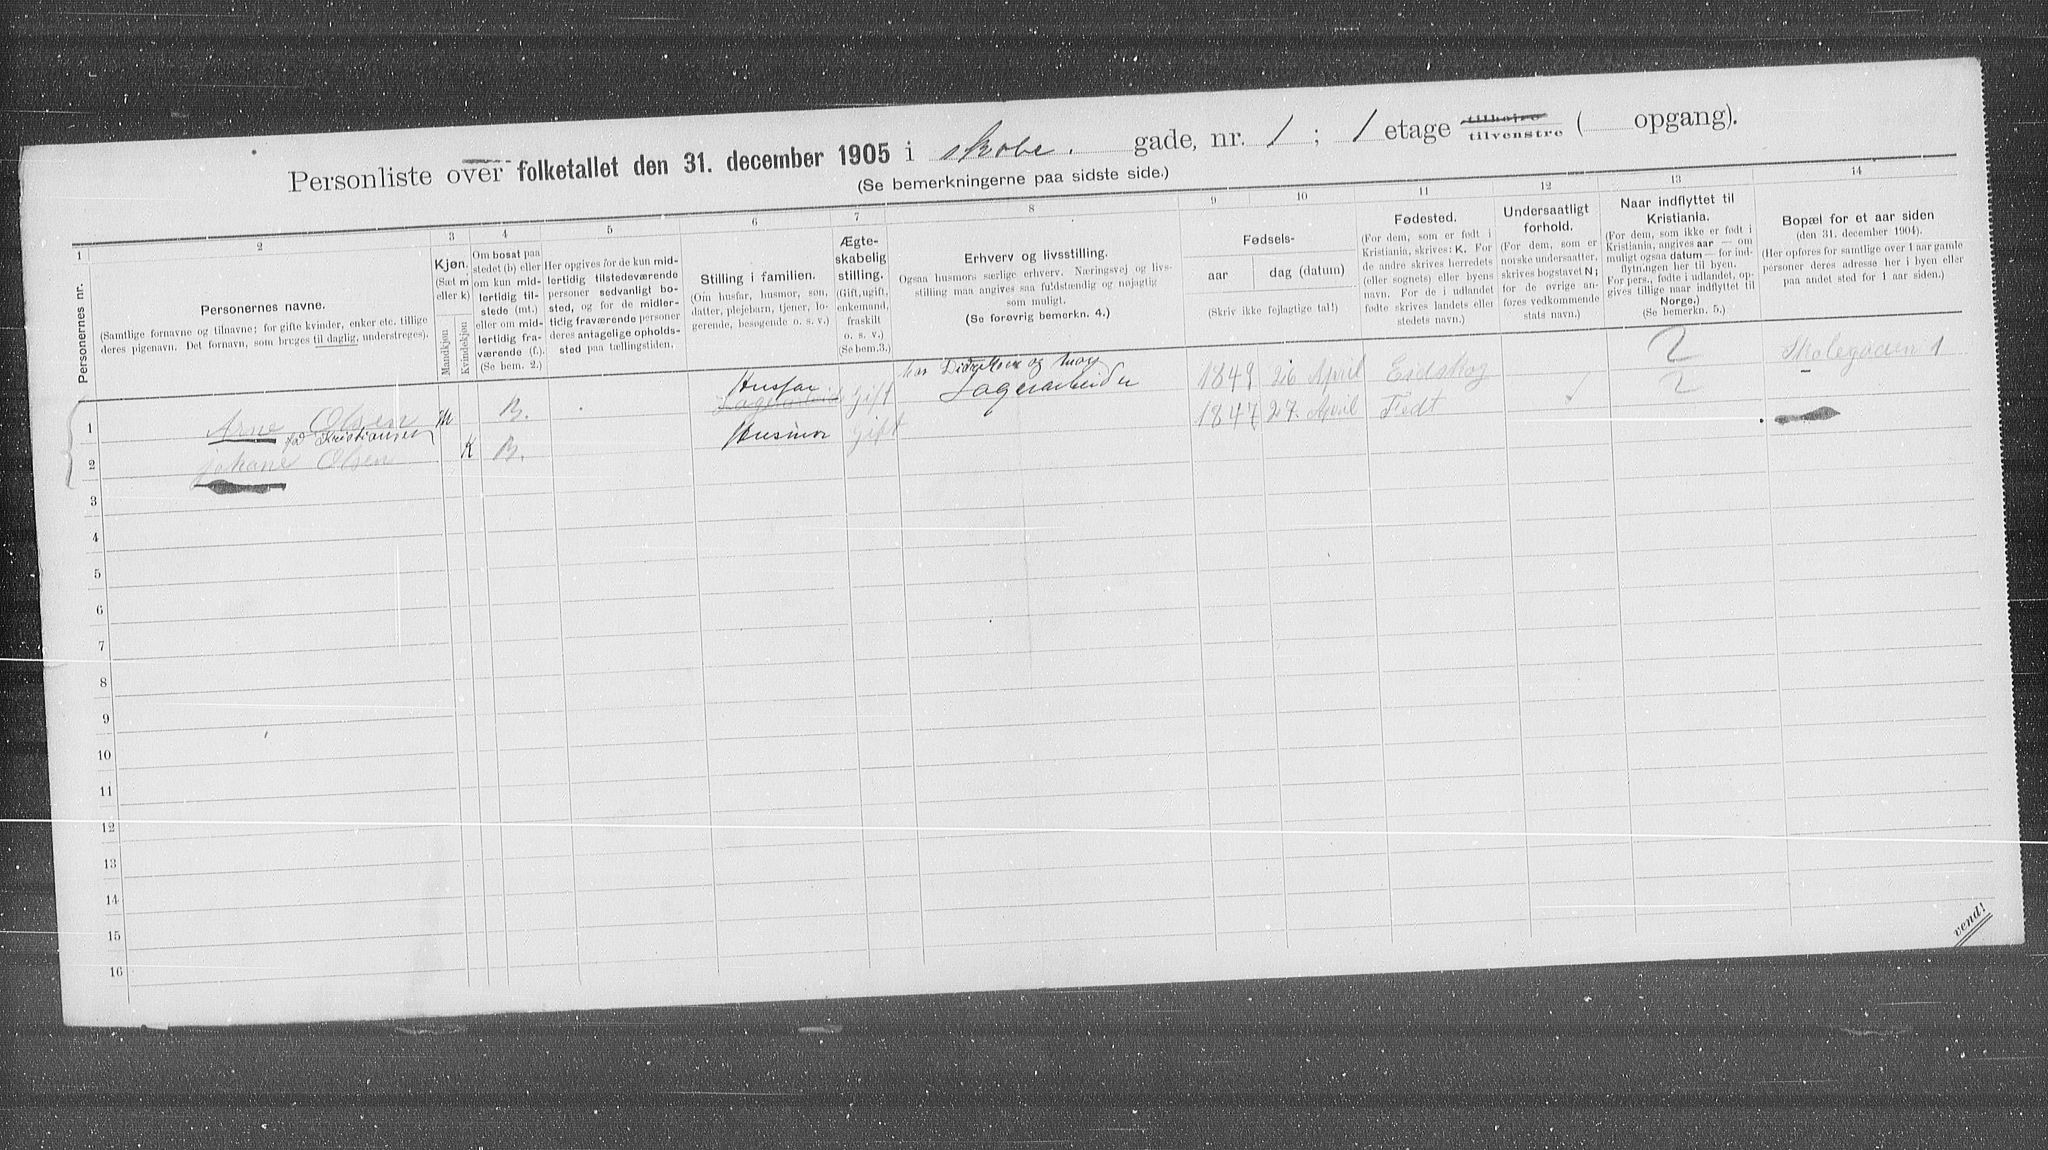 Personliste over folketallet den 31. december 1905 i skobe. gade, nr. 1 ; 1 etage tilhøjre tilvenstre ( opgang).
(Se bemerkningerne paa sidste side.)
1 2 3 4 5 6 7 8 9 10 11 12 13 14
Personernes nr.
Personernes navne.
(Samtlige fornavne og tilnavne; for gifte kvinder, enker etc. tillige
deres pigenavn. Det fornavn, som bruges til daglig, understreges).
Kjøn.
(Sæt m
eller k)
Mandkjøn
Kvindekjøn
Om bosat paa
stedet (b) eller
om kun mid-
lertidig til-
stede (mt.)
eller om mid-
lertidig fra-
værende (f.).
(Se bem. 2.)
Her opgives for de kun mid-
lertidig tilstedeværende
personer sedvanligt bo-
sted, og for de midler-
tidig fraværende personer
deres antagelige opholds-
sted paa tællingstiden.
Stilling i familien.
(Om husfar, husmor, søn,
datter, plejebarn, tjener, lo-
gerende, besøgende o. s. v.)
Ægte-
skabelig
stilling.
(Gift, ugift,
enkemand,
fraskilt
o. s. v.)
(Se bem.3.)
Erhverv og livsstilling.
Ogsaa husmors særlige erhverv. Næringsvej og livs-
stilling maa angives saa fuldstændig og nøjagtig
som muligt.
(Se forøvrig bemerkn. 4.)
Fødsels-
aar dag (datum)
(Skriv ikke fejlagtige tal!)
Fødested.
(For dem, som er født i
Kristiania, skrives: K. For
de andre skrives herredets
(eller sognets) eller byens
navn. For de i udlandet
fødte skrives landets eller
stedets navn.)
Undersaatligt
forhold.
(For dem, som er
norske undersaatter,
skrives bogstavet N;
for de øvrige an-
føres vedkommende
stats navn.)
Naar indflyttet til
Kristiania.
(For dem, som ikke er født i
Kristiania, angives aar — om
muligt ogsaa datum — for ind-
flytningen her til byen.
For pers., fødte i udlandet, op-
gives tillige naar indflyttet til
Norge.)
(Se bemerkn. 5.)
Bopæl for et aar siden
(den 31. december 1904).
(Her opføres for samtlige over 1 aar gamle
personer deres adresse her i byen eller
paa andet sted for 1 aar siden.)
1 Arne Olsen m B. Husfar gift Lagerarbeider 1849 26 April Eidskog 2 Skolegaden 1
fød Kristiansen
2 Johane Olsen K B. Husmor gift 1847 27. April Fedt 2
3
4
5
6
7
8
9
10
11
12
13
14
15
16
vend!